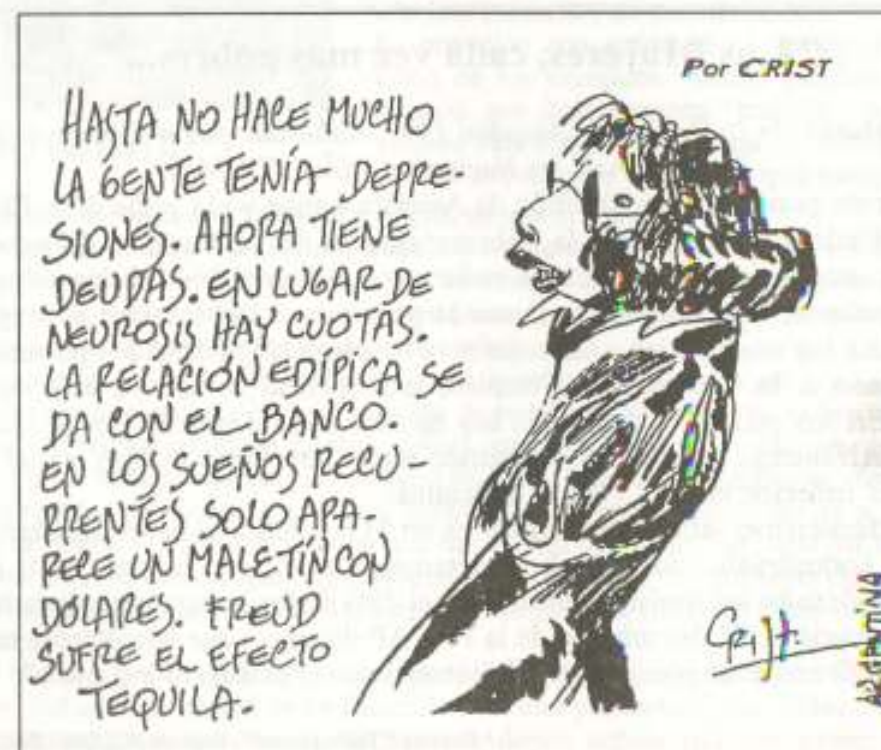 Por CRIST
HASTA NO HACE MUCHO
LA GENTE TENÍA DEPRE-
SIONES. AHORA TIENE
DEUDAS. EN LUGAR DE
NEUROSIS HAY CUOTAS.
LA RELACIÓN EDÍPICA SE
DA CON EL BANCO.
EN LOS SUEÑOS RECU-
RRENTES SOLO APA-
RECE UN MALETÍN CON
DOLARES. FREUD
SUFRE EL EFECTO
TEQUILA.
CRIST
ARGENTINA